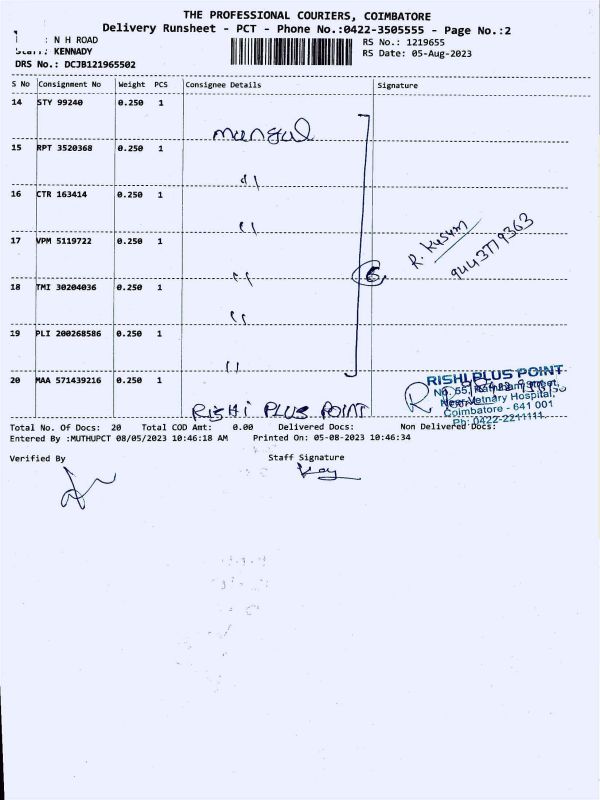 THE PROFESSIONAL COURIERS, COIMBATORE
Delivery Runsheet - PCT - Phone No.:0422-3505555 - Page No.:2
: N H ROAD
RS No.: 1219655
: KENNADY
RS Date: 05-Aug-2023
DRS No.: DCJB121965502
S No Consignment No Weight PCS Consignee Details Signature
14 STY 99240 0.250 1
15 RPT 3520368 0.250 1
"
16 CTR 163414 0.250 1
"
R. Kusum
9443779363
17 VPM 5119722 0.250 1
"
6
18 TMI 30204036 0.250 1
"
19 PLI 200268586 0.250 1
"
20 MAA 571439216 0.250 1
RISHI PLUS POINT
RISHI PLUS POINT
No. 55, Street,
Near Vetnary Hospital,
Coimbatore - 641 001
Ph: 0422-2211111
Total No. Of Docs: 20 Total COD Amt: 0.00 Delivered Docs: Non Delivered Docs:
Entered By :MUTHUPCT 08/05/2023 10:46:18 AM Printed On: 05-08-2023 10:46:34
Verified By Staff Signature